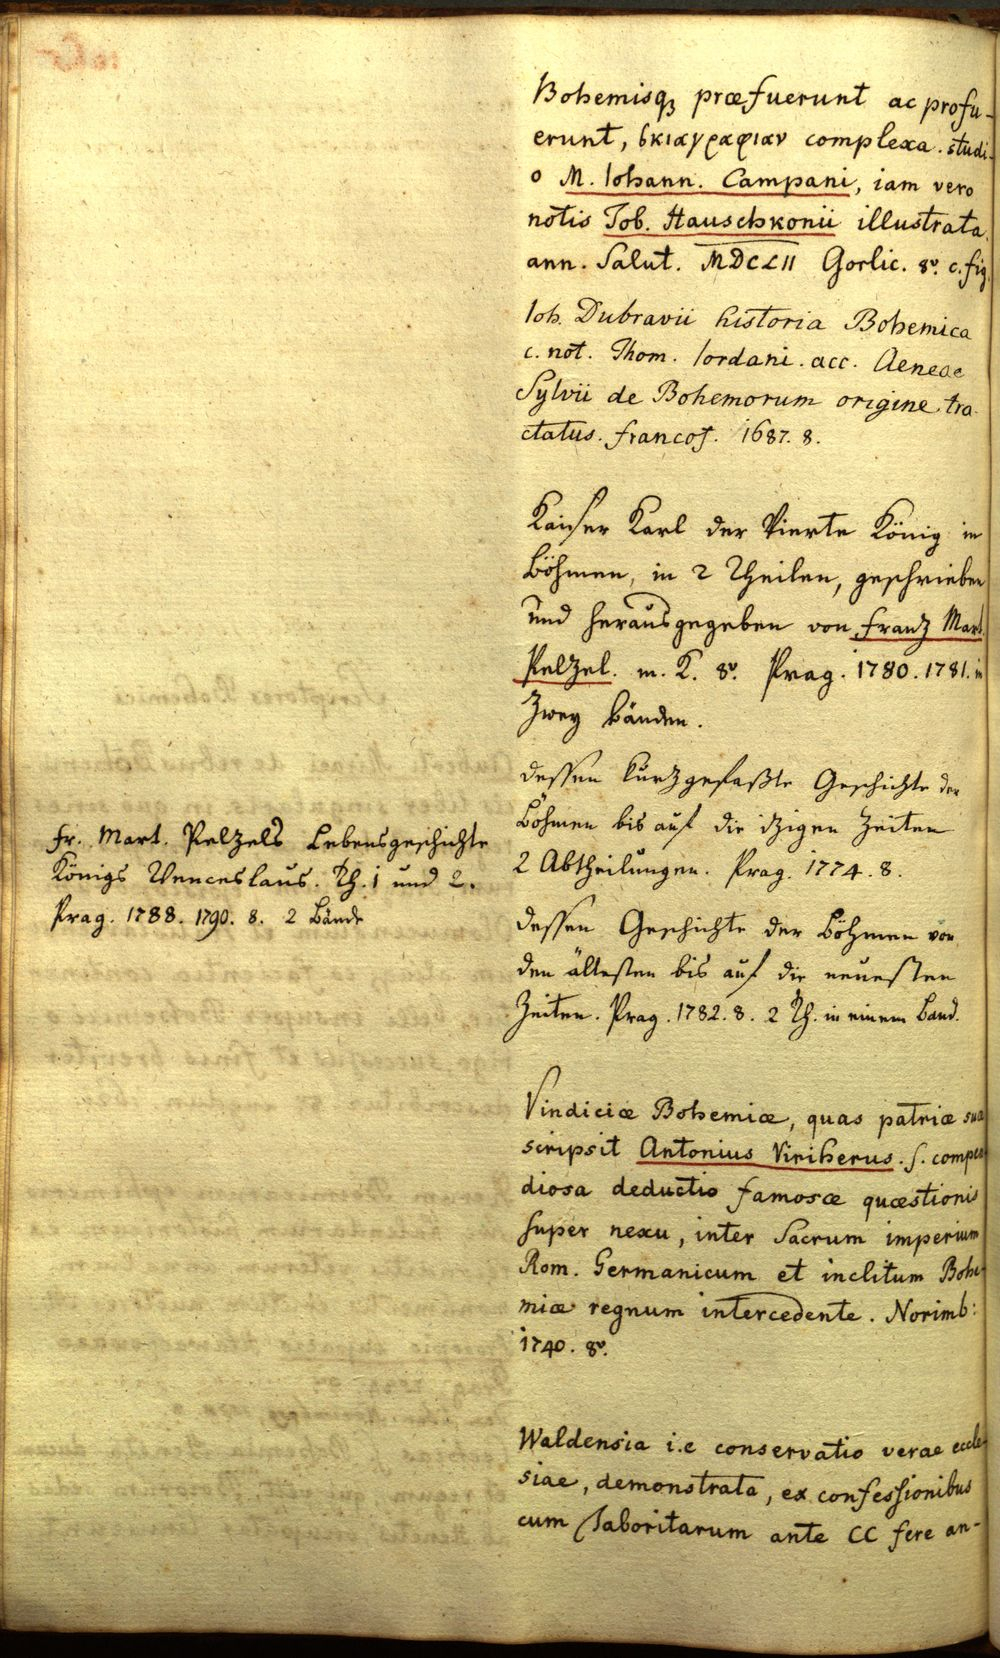 Bohemisq₃ præfuerunt ac profu-
erunt, σκιαγραφιαν complexa. studi-
o M. Iohann. Campani, iam vero
notis Tob. Hauschkonii illustrata.
ann. Salut. MDCLII Gorlic. 8º. c. fig.
Ioh. Dubravii historia Bohemica
c. not. Thom. Iordani. acc. Aeneae
Sylvii de Bohemorum origine tra-
ctatus. francof. 1687. 8.
Kaiser Karl der Vierte König in
Böhmen, in 2 Theilen, geschrieben
und herausgegeben von Franz Mart.
Pelzel. m. K. 8º. Prag. 1780. 1781. in
zwey Bänden.
dessen kurzgefaßte Geschichte der
Böhmen bis auf die itzigen Zeiten
2 Abtheilungen. Prag. 1774. 8.
Fr. Mart. Pelzels Lebensgeschichte
Königs Wenceslaus. Th. 1 und 2.
Prag. 1788. 1790. 8. 2 Bände
dessen Geschichte der Böhmen von
den ältesten bis auf die neuesten
Zeiten. Prag. 1782. 8. 2 Th. in einem Band.
Vindiciæ Bohemiæ, quas patriæ suæ
scripsit Antonius Viriherus. s. compen
diosa deductio famosæ quæstionis
super nexu, inter Sacrum imperium
Rom. Germanicum et inclitum Bohe-
miæ regnum intercedente. Norimb:
1740. 8º.
Waldensia i.e conservatio verae eccle-
siae, demonstrata, ex confessionibus
cum Taboritarum ante CC fere an-